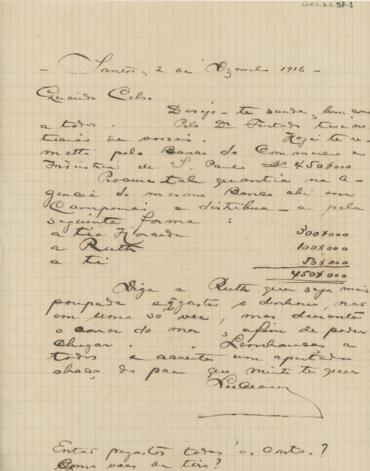 - Santos, 2 de Dezembro 1916 -
Querido Celso
Desejo-te saude, bem como
a todos. Pelo Dr. Furtado tive no-
ticias de vocês. Hoje te re-
metti pelo Banco do Commercio e
Industria de S. Paulo Rs 450$000
Procura tal quantia na A-
gencia do mesmo Banco ahi em
Campinas e distribua-a pela
seguinte forma:
a tia 300$000
a Ruth 100$000
a ti 50$000
450$000
Diga a Ruth que seja mais
poupada e gaste o dinheiro, não
em uma só vez, mas durante
o correr do mez, afim de poder
chegar. Lembranças a
todos e aceite um apertado
abraço do pae que muito te quer
Então pagastes todas as contas?
Como vaes de tiro?